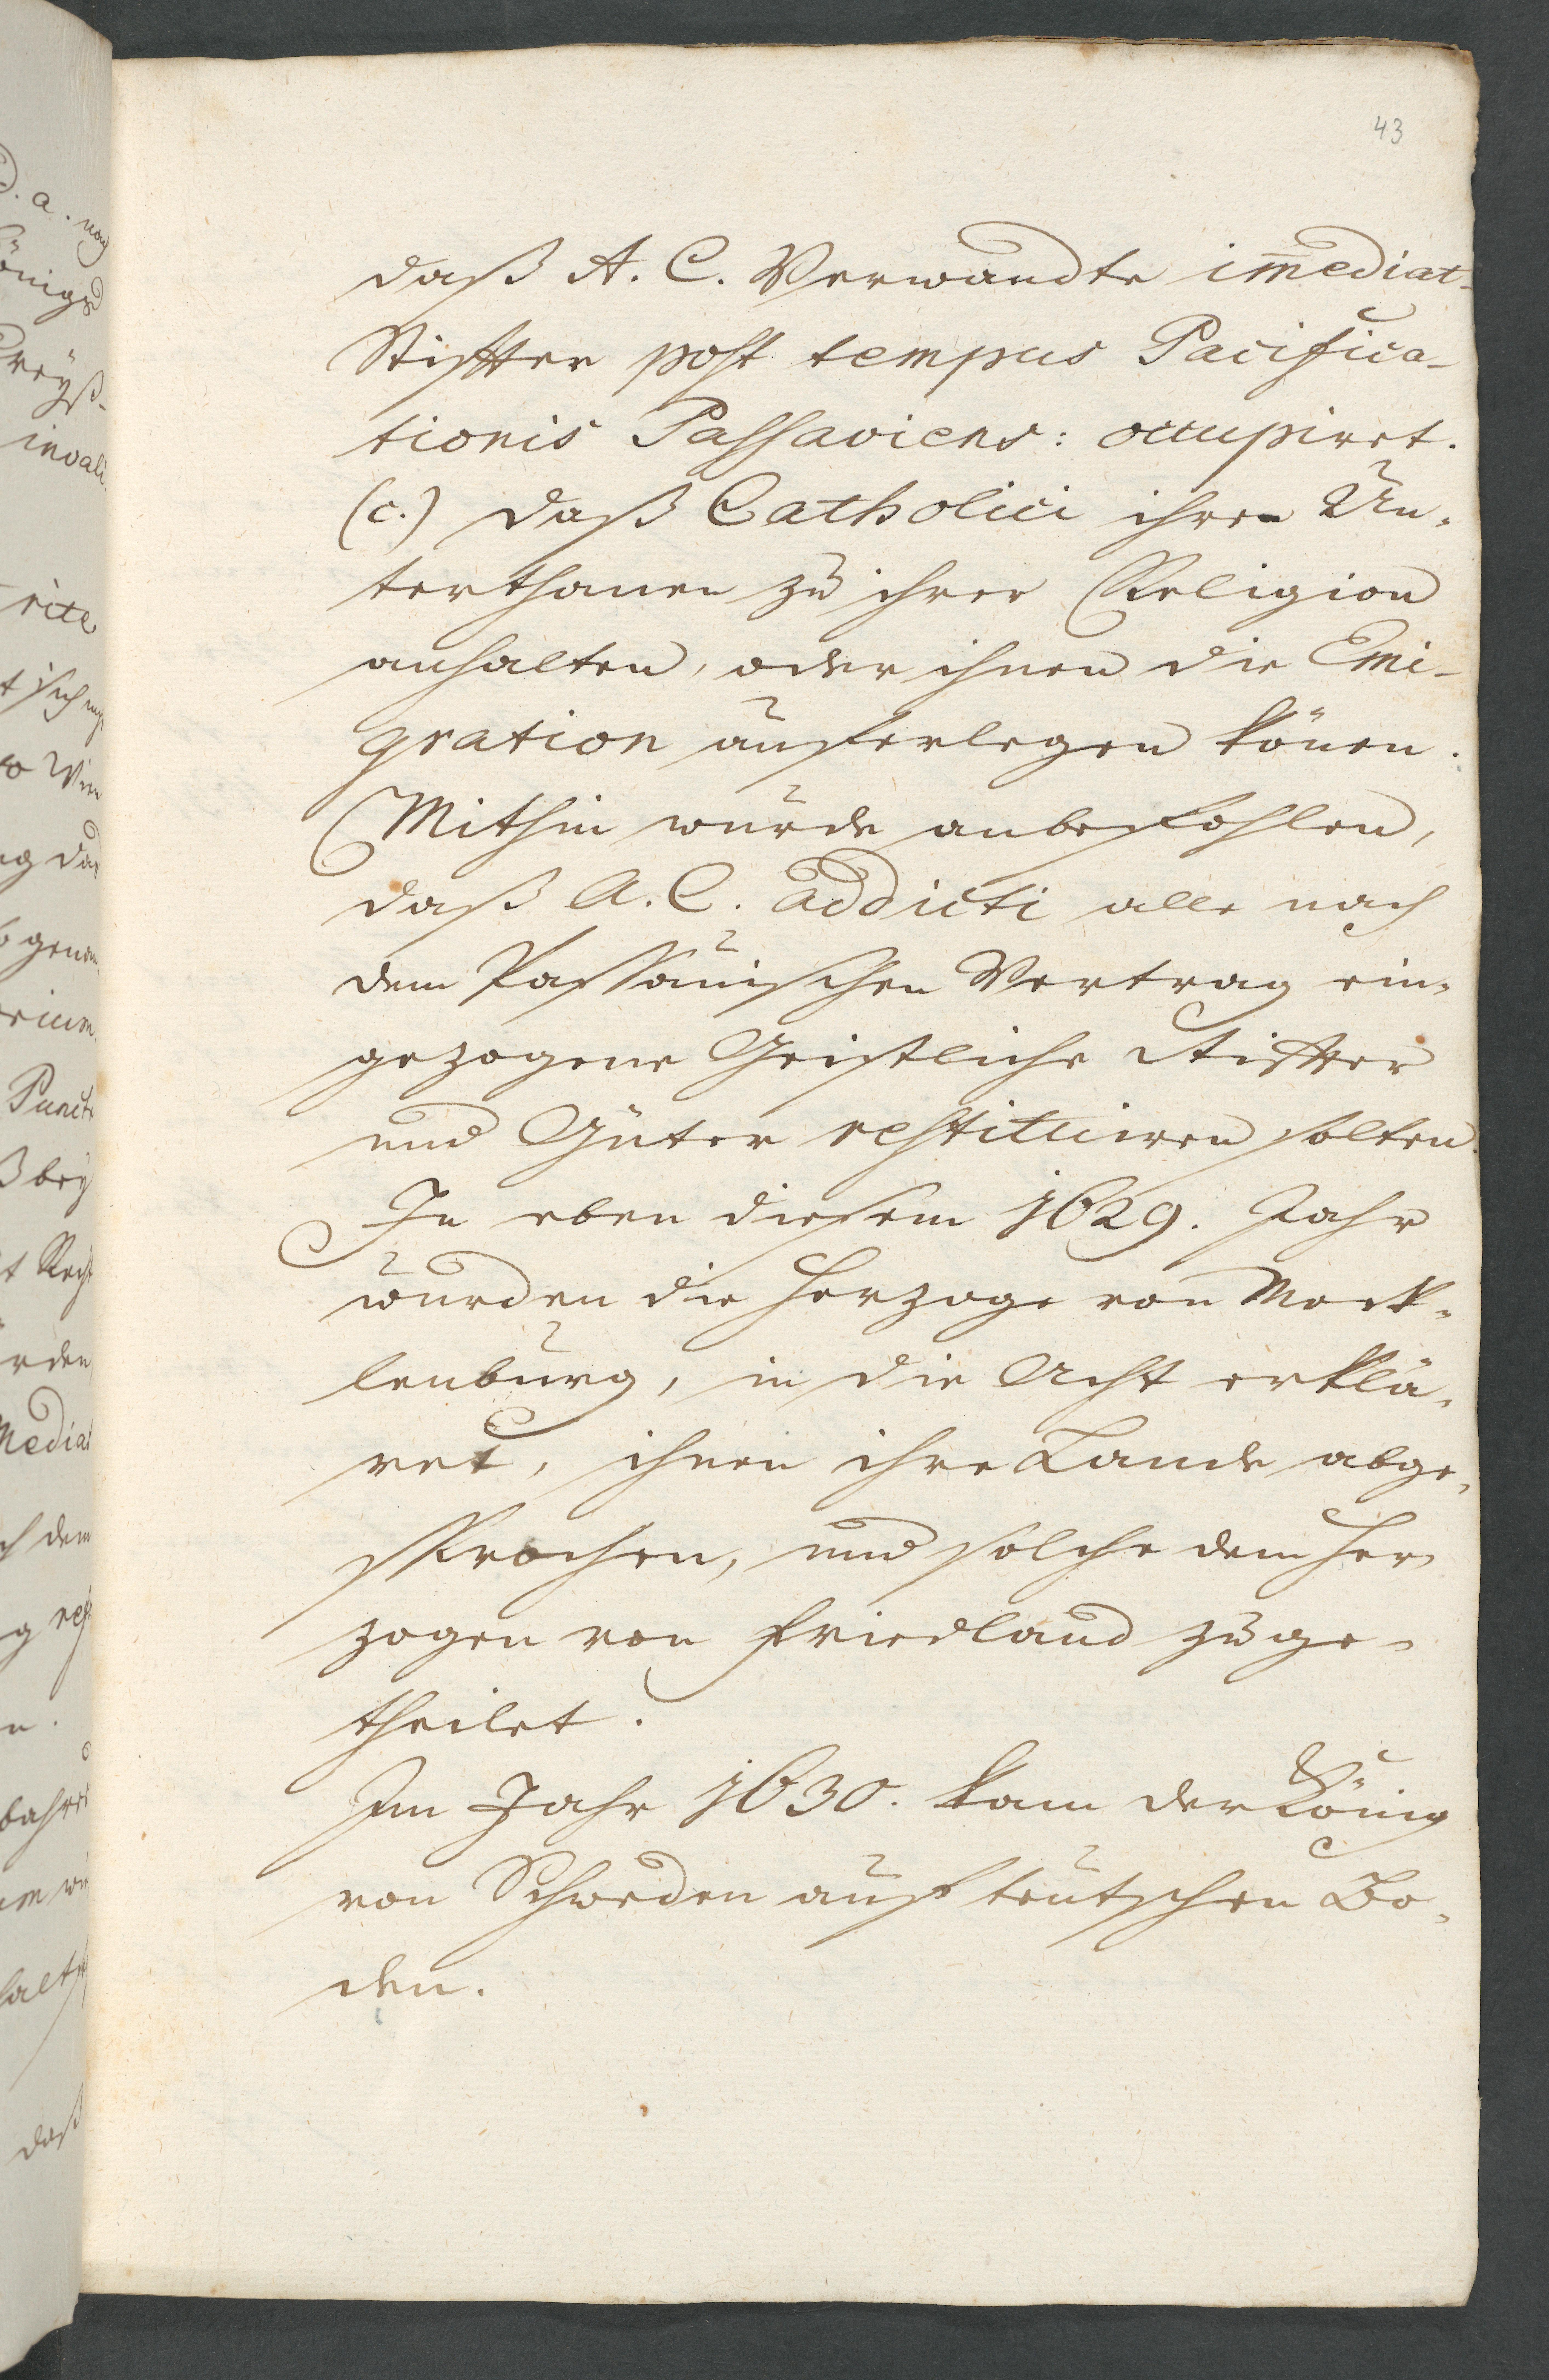 43
daß A. C. Verwandte im̄ediat-
Stiffter post tempus Pacifica-
tionis Passaviens: occupiret.
(c.) daß Catholici ihre Un-
terthanen zu ihrer Religion
anhalten, oder ihnen die Emi-
gration auferlegen kön̄en.
Mithin wurde anbefohlen,
daß A. C. addicti alle nach
dem Passauischen Vertrag ein-
gezogene Geistliche Stiffter
und Güter restituiren solten.
In eben diesem 1629. Jahr
wurden die Herzoge von Meck-
lenburg, in die Acht erklä-
ret, ihnen ihre Lande abge-
sprochen, und solche dem Her-
zogen von Friedland zuge-
theilet.
Im Jahr 1630. kam der König
von Schweden auf teutschen Bo-
den.